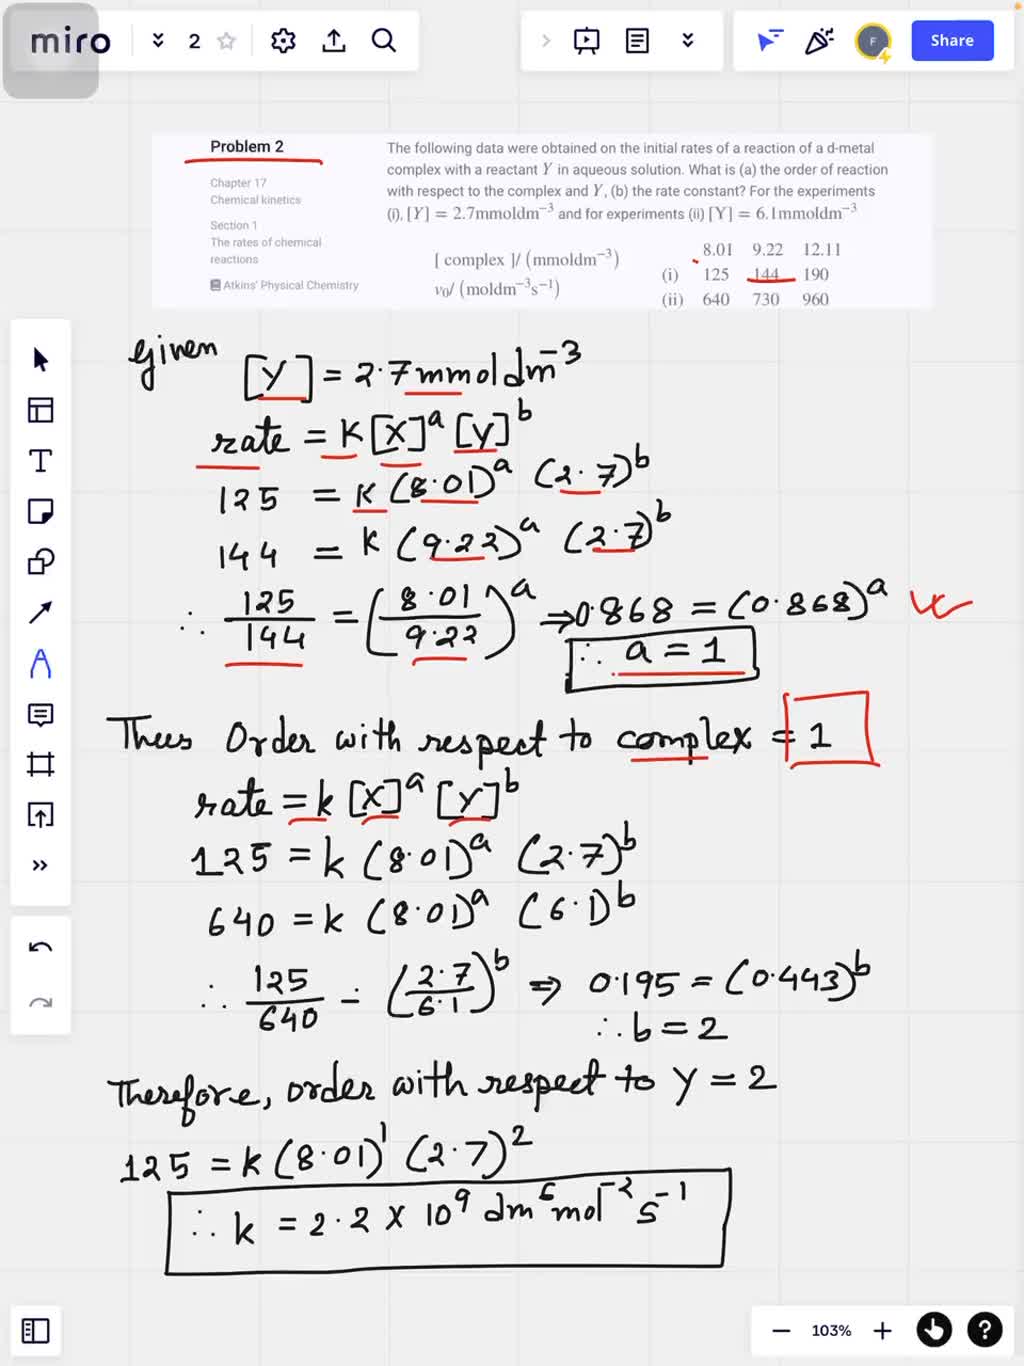 miro
2
F
Share
Problem 2
Chapter 17
Chemical kinetics
Section 1
The rates of chemical
reactions
Atkins' Physical Chemistry
The following data were obtained on the initial rates of a reaction of a d-metal
complex with a reactant Y in aqueous solution. What is (a) the order of reaction
with respect to the complex and Y, (b) the rate constant? For the experiments
(i), [Y] = 2.7mmoldm⁻³ and for experiments (ii) [Y] = 6.1mmoldm⁻³
[ complex ]/ (mmoldm⁻³) 8.01 9.22 12.11
v₀/ (moldm⁻³s⁻¹) (i) 125 144 190
(ii) 640 730 960
Given
[Y] = 2.7 mmol dm⁻³
rate = k [X]ᵃ [Y]ᵇ
125 = k (8.01)ᵃ (2.7)ᵇ
144 = k (9.22)ᵃ (2.7)ᵇ
∴ 125/144 = (8.01/9.22)ᵃ ⇒ 0.868 = (0.868)ᵃ
∴ a = 1
Thus Order with respect to complex = 1
rate = k [X]ᵃ [Y]ᵇ
125 = k (8.01)ᵃ (2.7)ᵇ
640 = k (8.01)ᵃ (6.1)ᵇ
∴ 125/640 = (2.7/6.1)ᵇ ⇒ 0.195 = (0.443)ᵇ
∴ b = 2
Therefore, order with respect to Y = 2
125 = k (8.01)¹ (2.7)²
∴ k = 2.2 × 10⁹ dm⁶ mol⁻² s⁻¹
103%